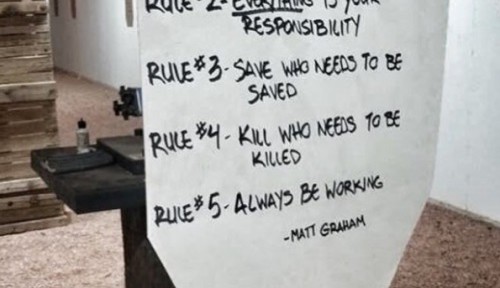 RULE #2- EVERYTHING IS YOUR
RESPONSIBILITY
RULE #3- SAVE WHO NEEDS TO BE
SAVED
RULE #4- KILL WHO NEEDS TO BE
KILLED
RULE #5- ALWAYS BE WORKING
-MATT GRAHAM